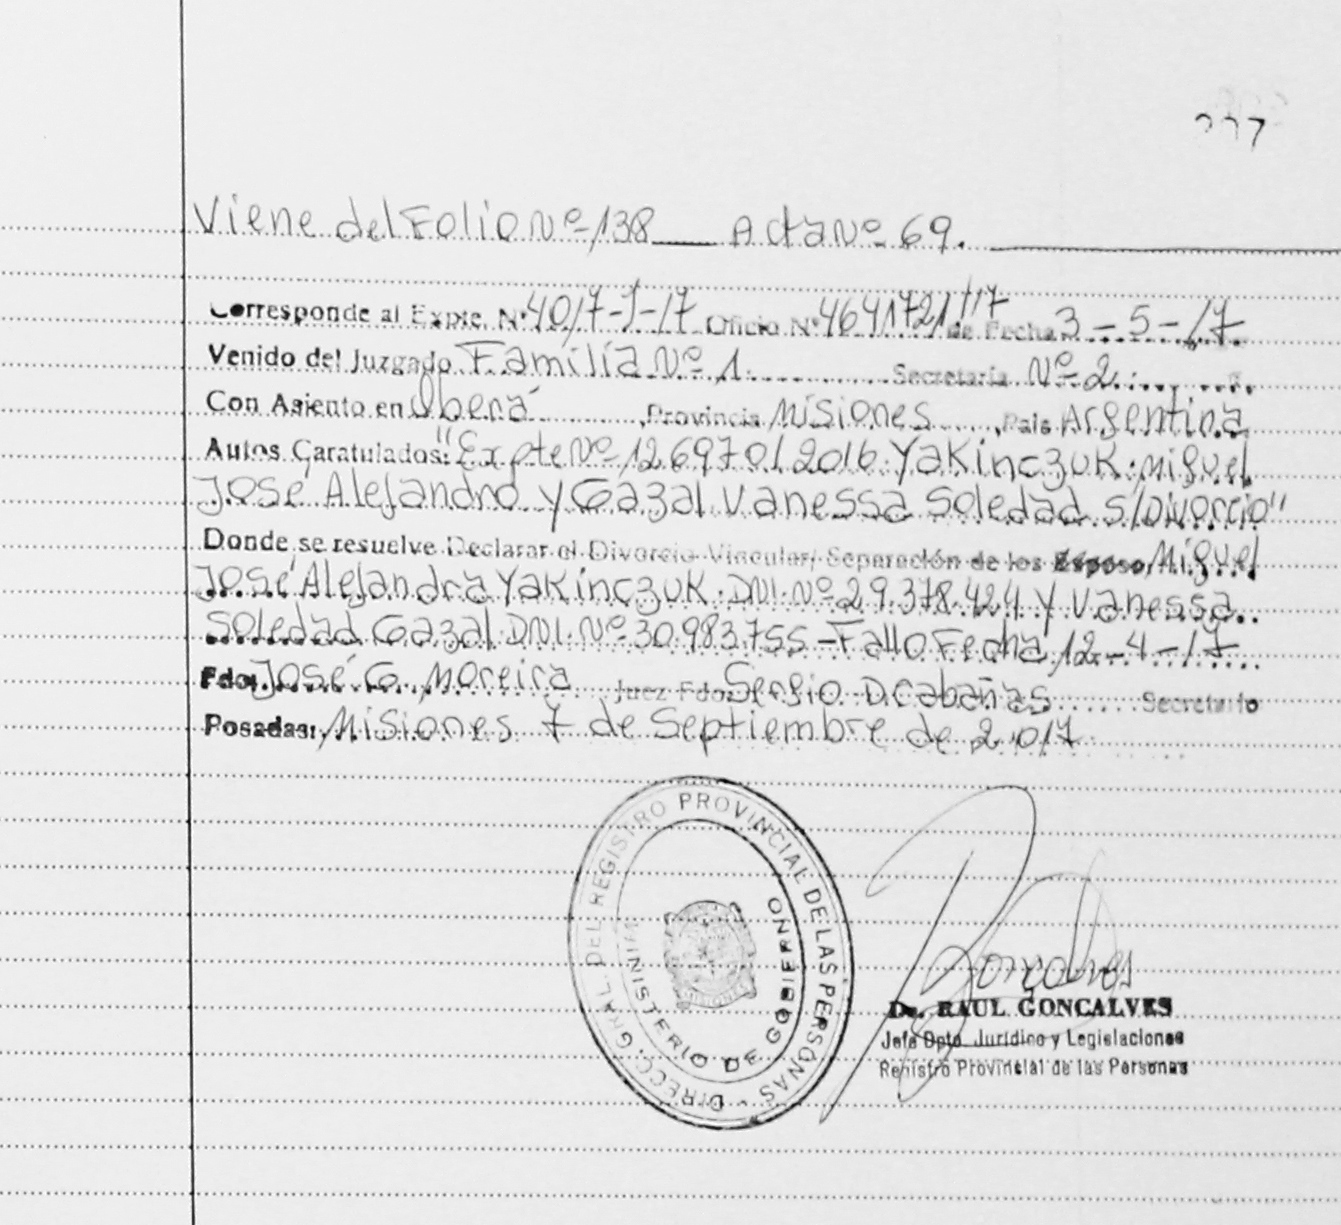 227
Viene del Folio Nº 138 Acta Nº 69.
Corresponde al Expte. Nº 4017-J-17 Oficio Nº 4641721/17 de Fecha 3-5-17
Venido del Juzgado Familia Nº 1 Secretaría Nº 2
Con Asiento en Oberá, Provincia Misiones, País Argentina
Autos Caratulados: "Expte Nº 126970/2016 Yakinczuk Miguel
José Alejandro y Gazal Vanessa Soledad s/Divorcio"
Donde se resuelve Declarar el Divorcio Vincular/ Separación de los Esposo, Miguel
José Alejandra Yakinczuk DNI. Nº 29.378.424 y Vanessa
Soledad Gazal DNI. Nº 30.983.755 - Fallo Fecha 12-4-17
Fdo: José G. Moreira Juez Fdo: Sergio D Cabañas Secretario
Posadas: Misiones 7 de Septiembre de 2017
DIRECC. GRAL. DEL REGISTRO PROVINCIAL DE LAS PERSONAS -
MINISTERIO DE GOBIERNO
MISIONES
Goncalves
Dr. RAUL GONCALVES
Jefe Dpto. Jurídico y Legislaciones
Registro Provincial de las Personas